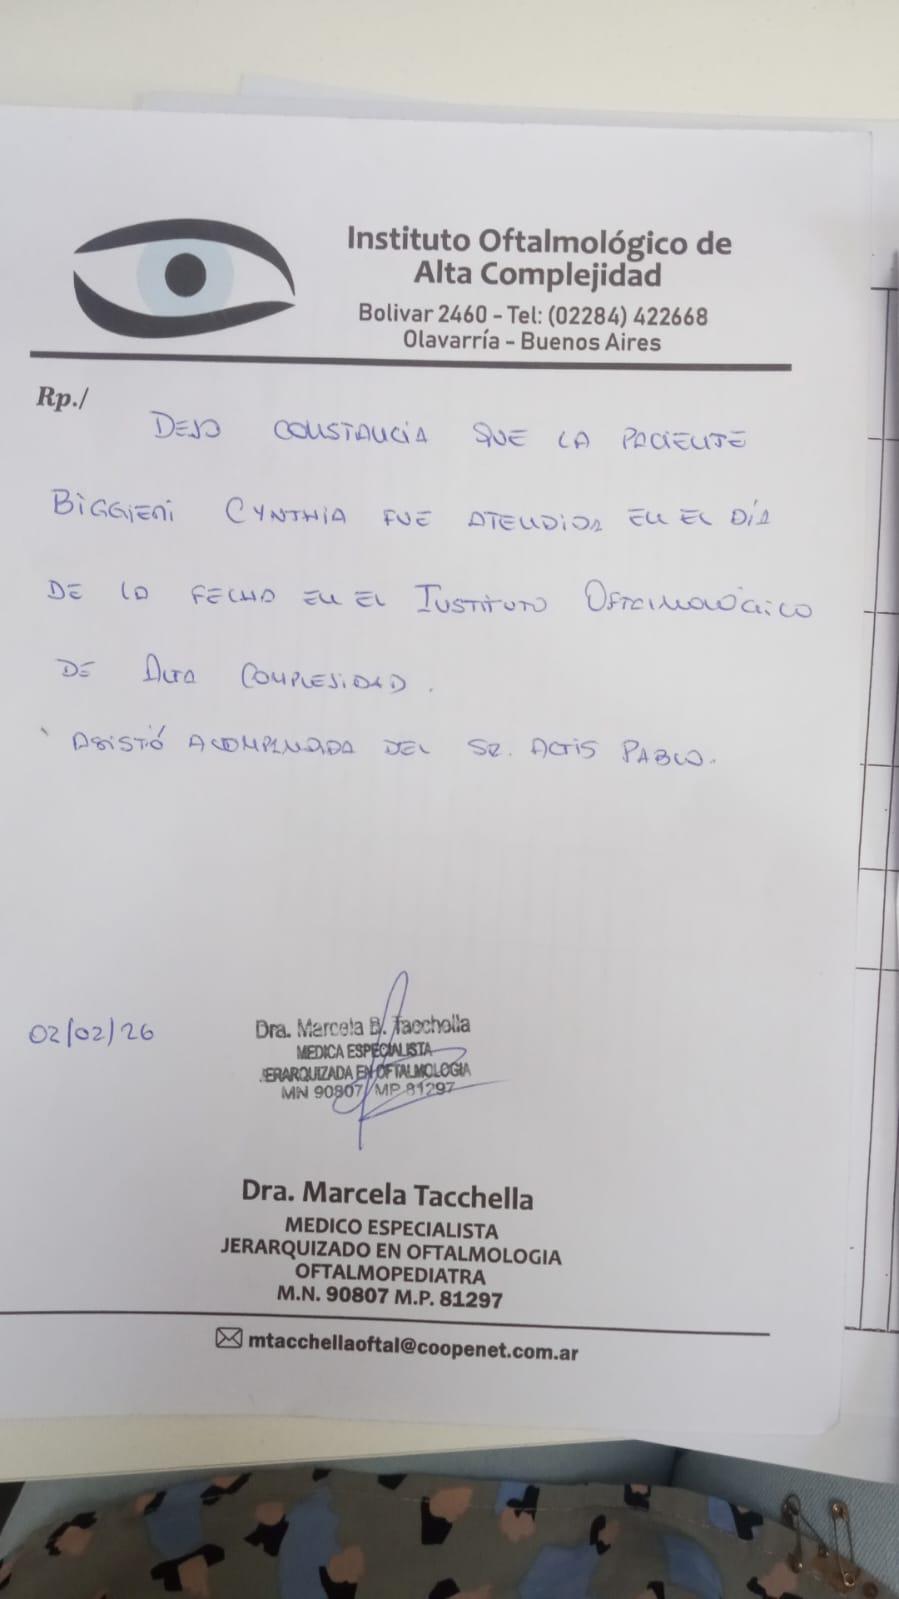 Instituto Oftalmológico de
Alta Complejidad
Bolivar 2460 - Tel: (02284) 422668
Olavarría - Buenos Aires
Rp./
DEJO CONSTANCIA QUE LA PACIENTE
BIGGIERI CYNTHIA FUE ATENDIDA EN EL DÍA
DE LA FECHA EN EL INSTITUTO OFTALMOLÓGICO
DE ALTA COMPLEJIDAD.
ASISTIÓ ACOMPAÑADA DEL SR. ACTIS PABLO.
02/02/26
Dra. Marcela B. Tacchella
MEDICA ESPECIALISTA
JERARQUIZADA EN OFTALMOLOGIA
MN 90807 MP 81297
Dra. Marcela Tacchella
MEDICO ESPECIALISTA
JERARQUIZADO EN OFTALMOLOGIA
OFTALMOPEDIATRA
M.N. 90807 M.P. 81297
mtacchellaoftal@coopenet.com.ar